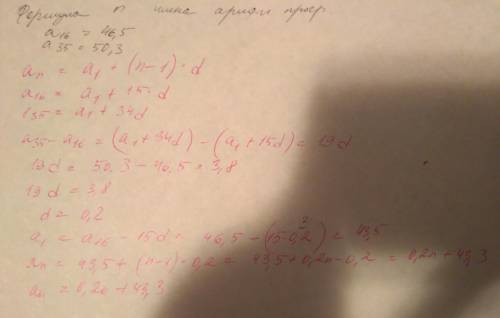 Формула n члена арифм прогр
a16 = 46,5
a35 = 50,3
an = a1 + (n-1)·d
a16 = a1 + 15·d
135 = a1 + 34d
a35 - a16 = (a1 + 34d) - (a1 + 15d) = 19d
19d = 50,3 - 46,5 = 3,8
19d = 3,8
d = 0,2
a1 = a16 - 15d = 46,5 - (15·0,2) = 43,5
an = 43,5 + (n-1)·0,2 = 43,5 + 0,2n - 0,2 = 0,2n + 43,3
an = 0,2n + 43,3